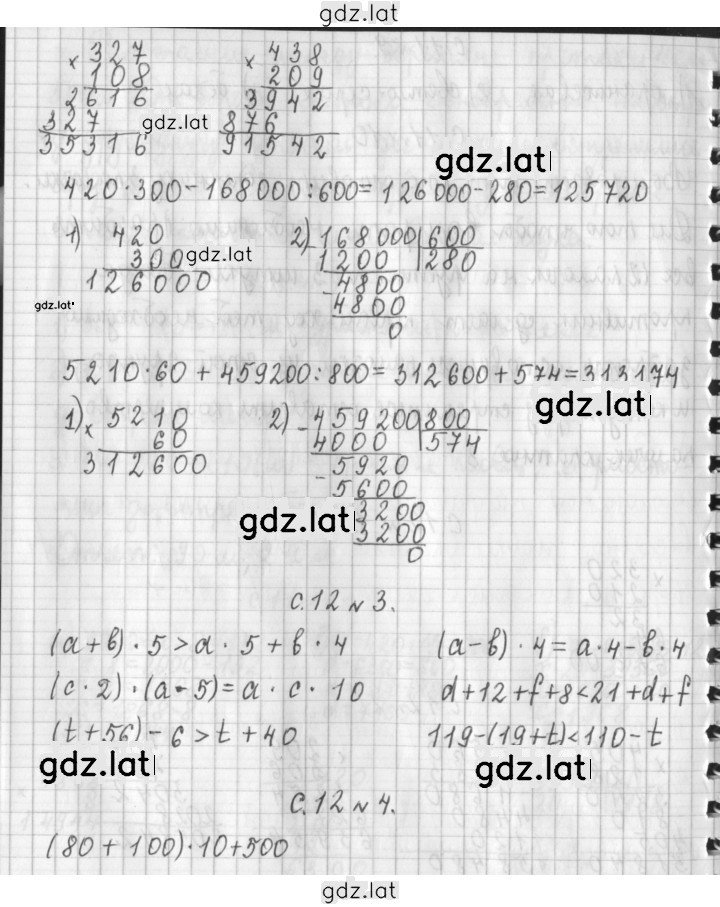 gdz.lat
× 327 × 438
108 209
2616 3942
327 gdz.lat 876
35316 91542
gdz.lat
420·300-168000:600=126000-280=125720
1) 420 2) -168000|600
300 gdz.lat 1200 280
126000 -4800
gdz.lat 4800
0
5210·60+459200:800=312600+574=313174
gdz.lat
1) × 5210 2) -459200|800
60 4000 574
312600 -5920
5600
gdz.lat 3200
3200
0
с.12 № 3.
(a+b)·5>a·5+b·4 (a-b)·4=a·4-b·4
(c·2)·(a·5)=a·c·10 d+12+f+8<21+d+f
(t+56)-6>t+40 119-(19+t)<110-t
gdz.lat gdz.lat
с.12 № 4.
(80+100)·10+500
gdz.lat